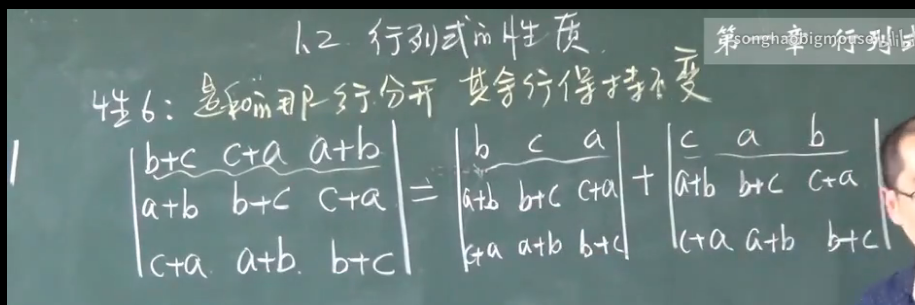 1.2 行列式的性质
第一章 行列式
songhaobigmouse
性6: 是和的那一行分开 其余行保持不变
|b+c c+a a+b| = |b c a| + |c a b|
|a+b b+c c+a| |a+b b+c c+a| |a+b b+c c+a|
|c+a a+b b+c| |c+a a+b b+c| |c+a a+b b+c|